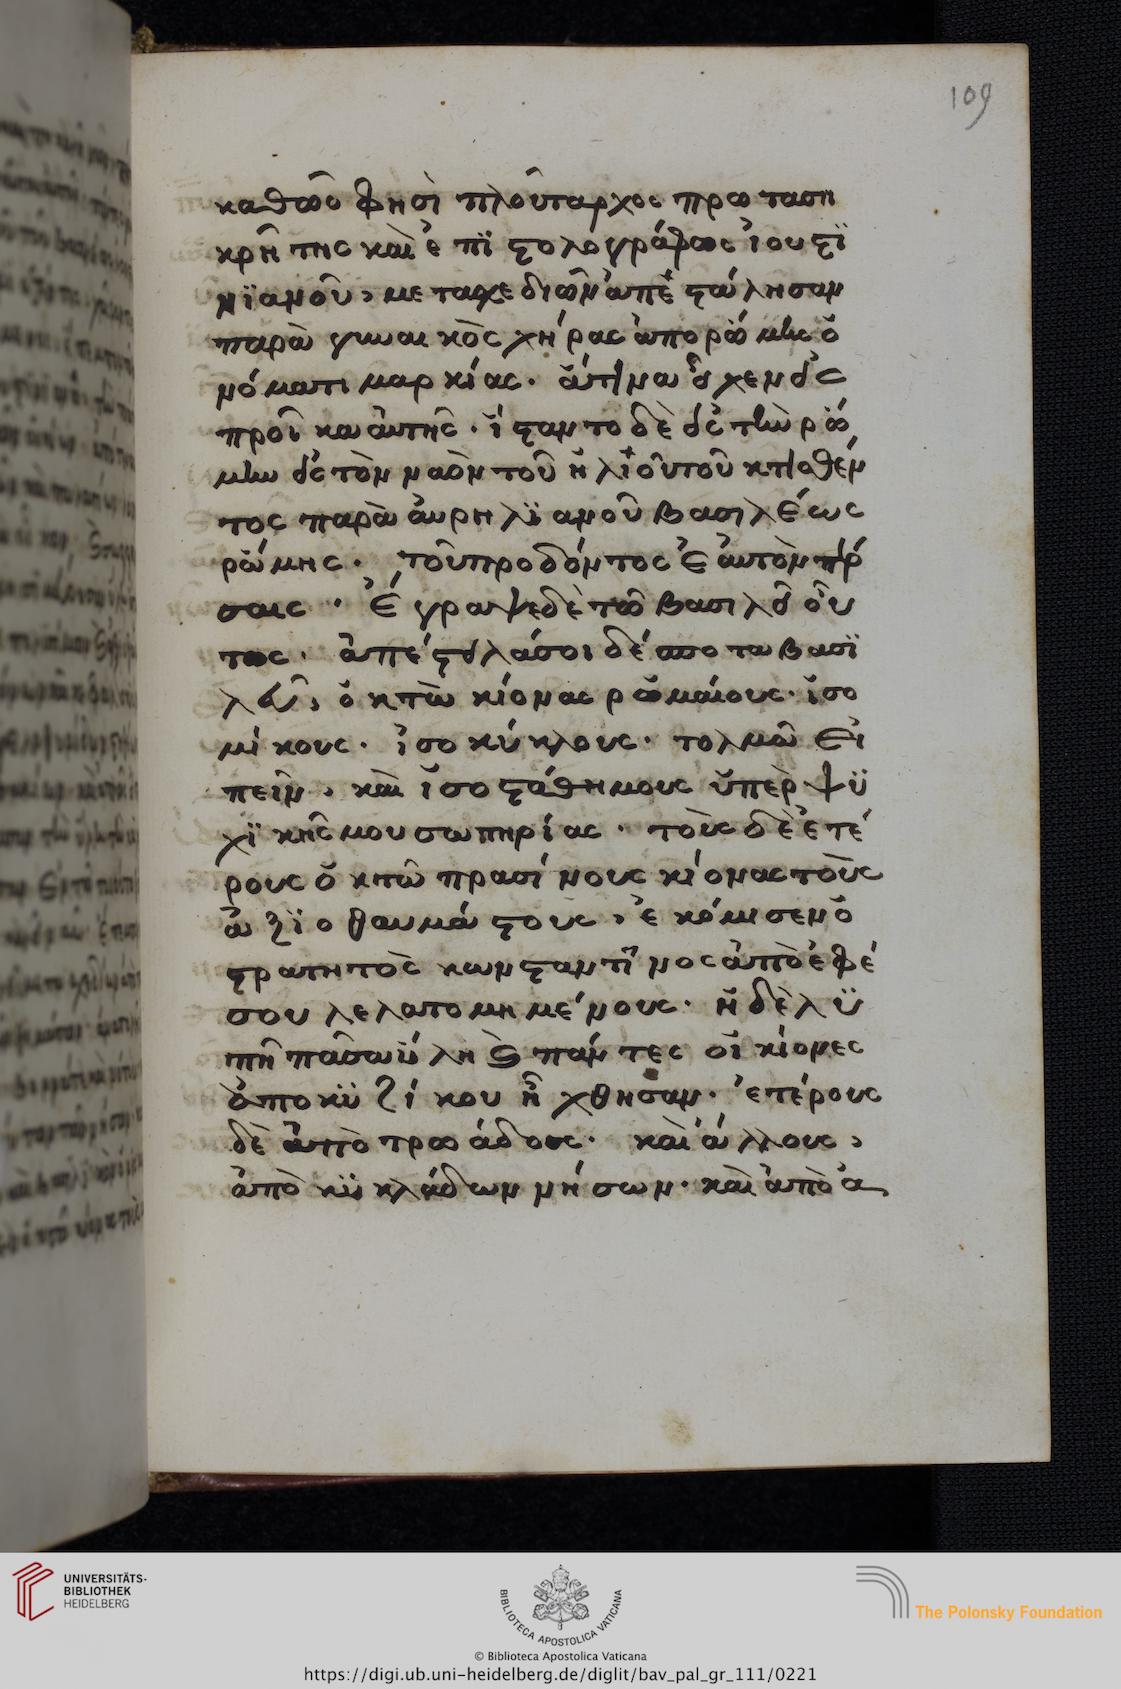 109
καθῶο φησὶ πλοῦταρχος πρωταση
κρῆτης καὶ ἐπϊστολογράφος ἰουστϊ
νϊανοῦ, μετασχεδιῶν ἀπέστάλησαν
παρὰ γυναικὸς χήρας ἀπὸ ρώμης ὀ
νόματι μαρκίας. ἅτινα εἶχεν εἰς
προῖκα αὐτῆς. ἵσταντο δὲ εἰς τὴν ρώ
μην εἰς τὸν ναὸν τοῦ ἡλίου τοῦ κτισθέν
τος παρὰ αὐρηλϊανοῦ βασιλέως
ρώμης. τοῦ προδόντος ἑαὐτὸν πέρ
σαις. Ἔγραψε δὲ τῶ βασιλεῖ οὕ
τως. ἀπέστειλά σοι δέσποτα βασϊ
λεῦ, ὀκτὼ κίονας ρωμαίους. ἰσο
μίκους. ἰσοκύκλους. τολμῶ εἰ
πεῖν. καὶ ἰσοστάθημους ὑπὲρ ψϋ
χϊκῆς μου σωτηρίας. τοὺς δὲ ἑτέ
ρους ὀκτῶ πρασίνους κίονας τοὺς
ἀξϊοθαυμάστους, ἐκόμισεν ὁ
στρατητὸς κωνσταντῖνος ἀπὸ ἐφέ
σου λελατομημένους. ἡ δὲ λϋ
πὴ πᾶσα ὕλη καὶ πάντες οἱ κίονες
ἀπὸ κϋζίκου ἤχθησαν. ἑτέρους
δὲ ἀπὸ τρωάδος. καὶ ἄλλους,
ἀπὸ κϋκλάδων νήσων. καὶ ἀπὸ ἀ
UNIVERSITÄTS-
BIBLIOTHEK
HEIDELBERG
BIBLIOTECA APOSTOLICA VATICANA
The Polonsky Foundation
© Biblioteca Apostolica Vaticana
https://digi.ub.uni-heidelberg.de/diglit/bav_pal_gr_111/0221